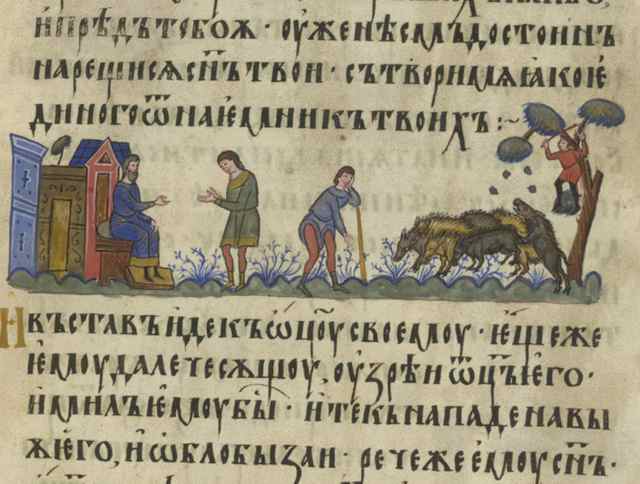 и прѣдъ тобоѫ · оуже нѣсмъ достоинъ
нарещисѧ с҃нъ твои · сътвори мѧ ꙗко ѥ
диного ѿ наѥмникъ твоихъ :~
И въставъ иде къ ѡц҃оу своемоу · ѥще же
ѥмоу далече сѫщоу, оузрѣ и ѡц҃ъ ѥго ·
и милъ ѥмоу бы҃ · и текъ нападе на вы
ѫ ѥго, и ѡблобыза и · рече же емоу с҃нъ ·